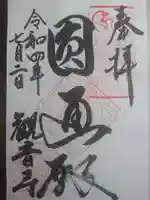 奉拝
圓通殿
令和四年
七月二日
観音寺